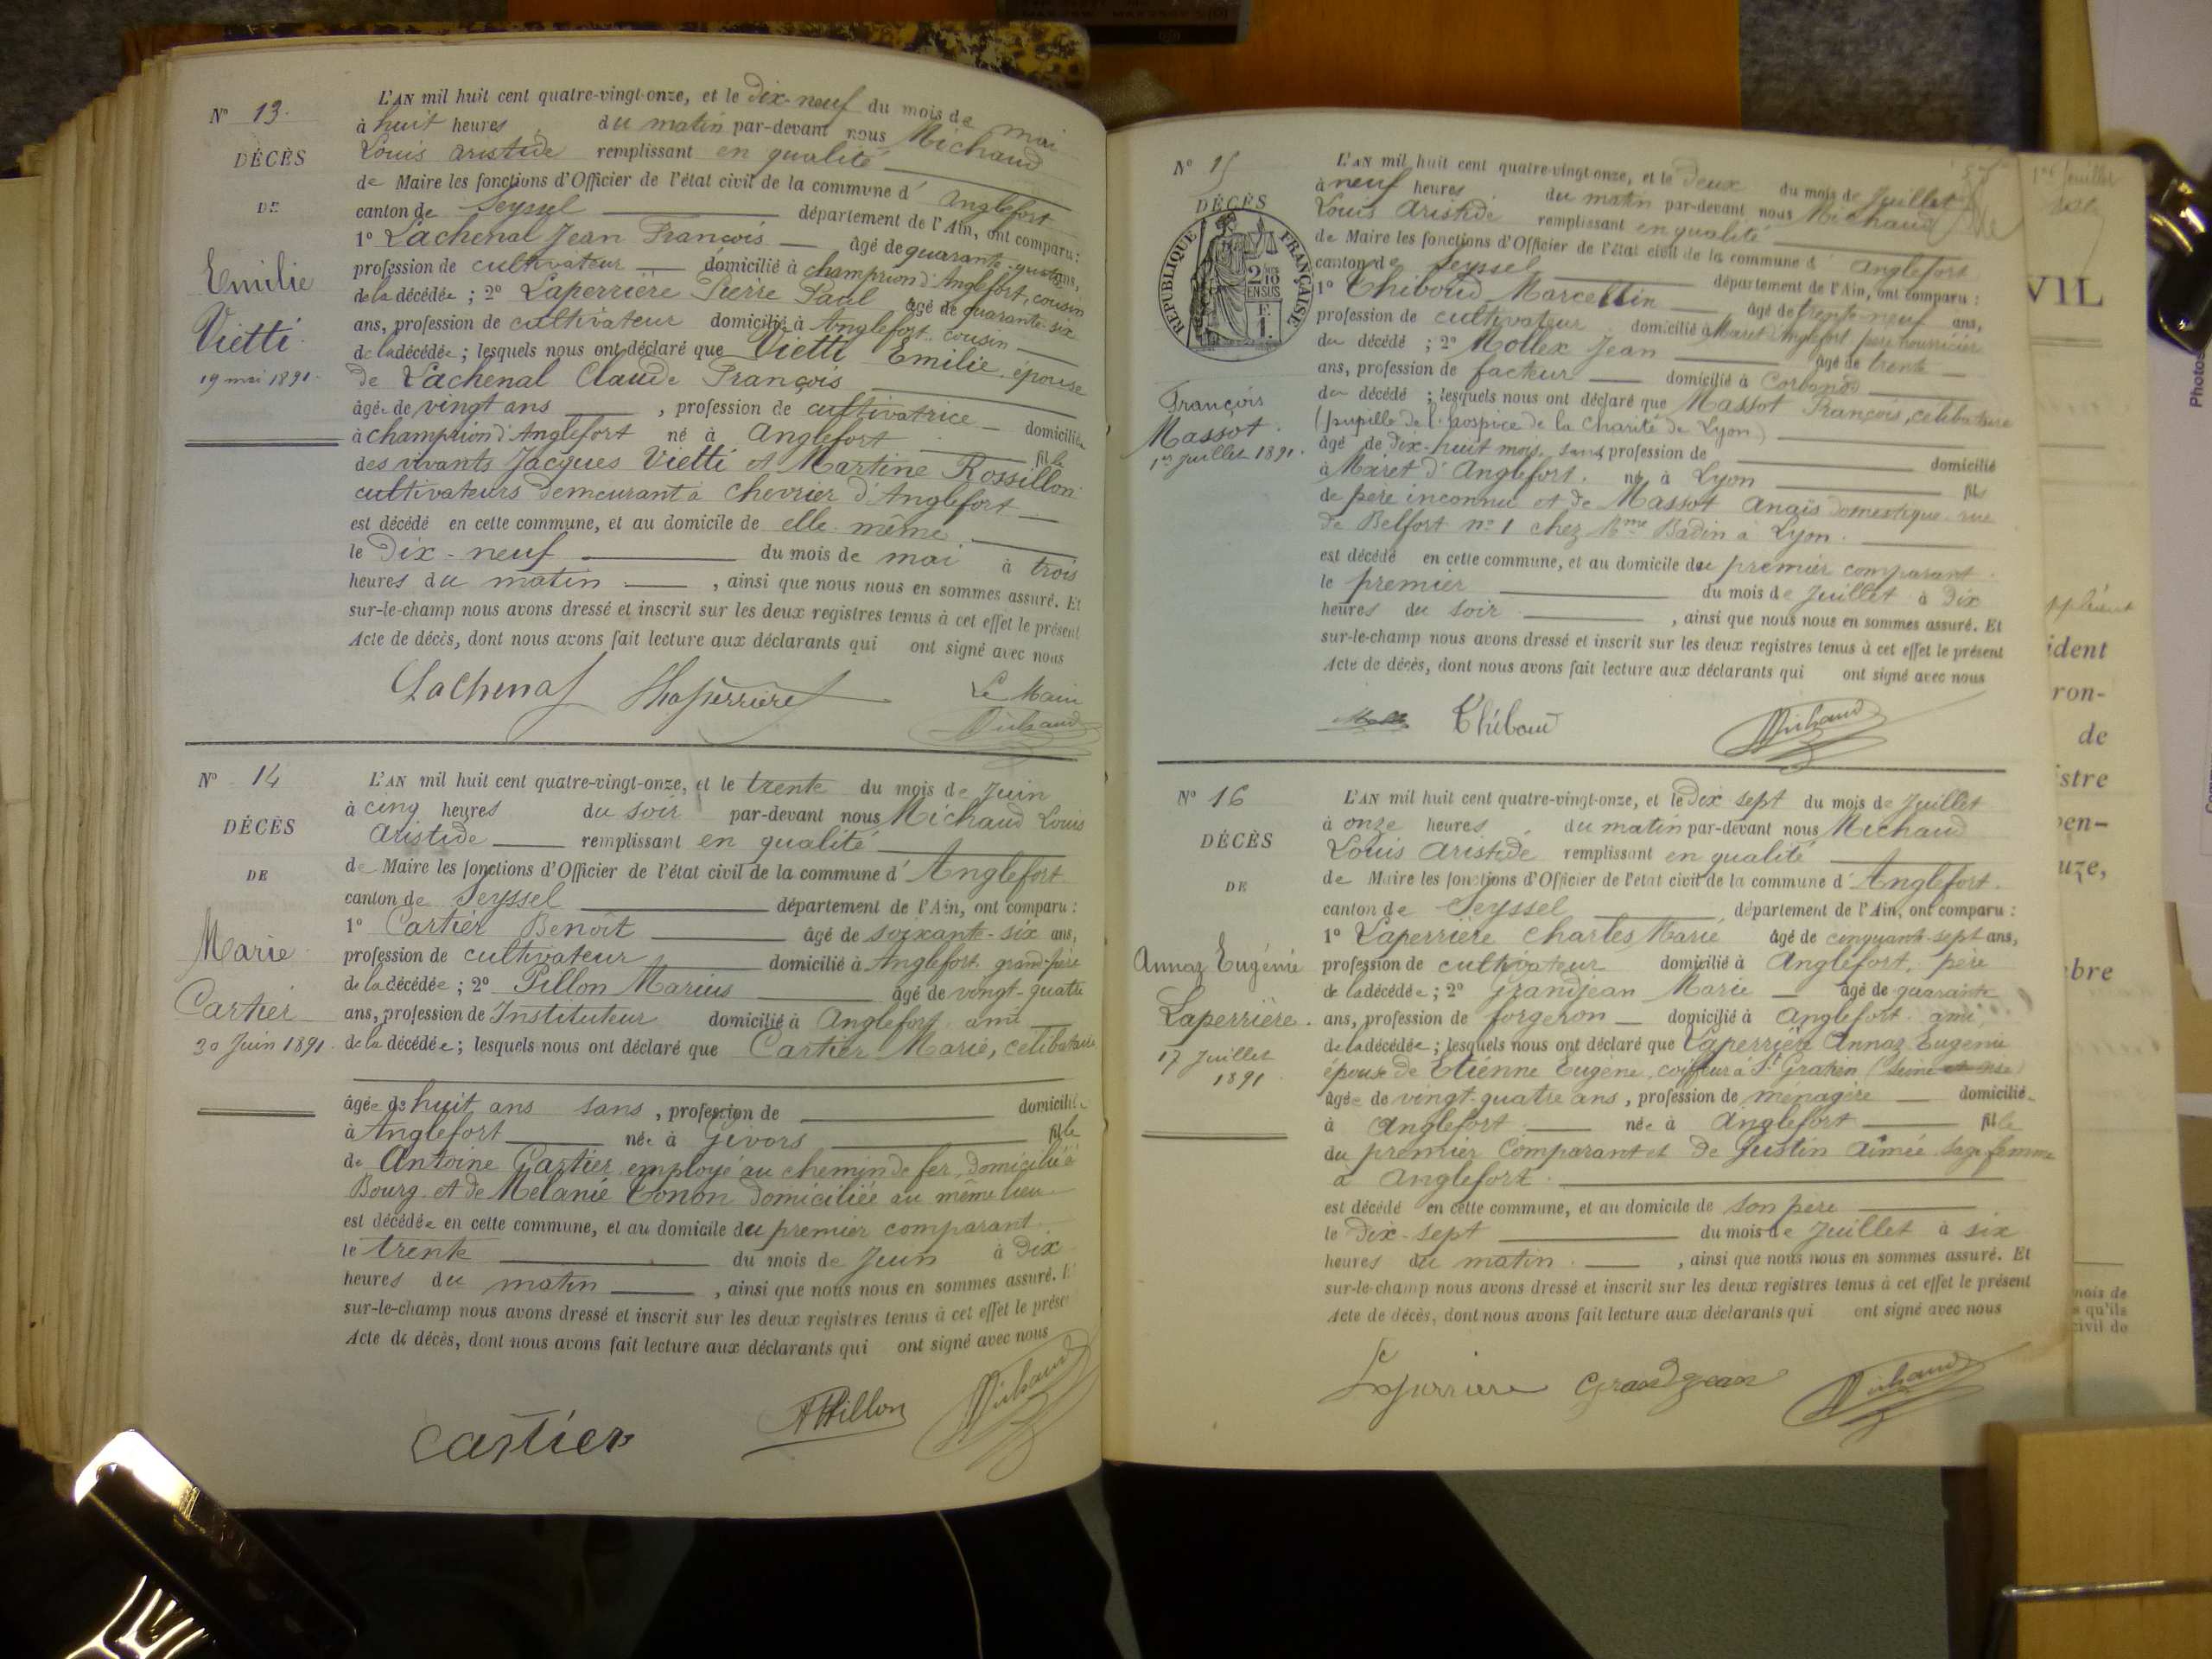 N° 13.
DÉCÈS
DE
Emilie
Vietti
19 mai 1891.
L'AN mil huit cent quatre-vingt-onze, et le Dix-neuf du mois de mai
à huit heures du matin par-devant nous Michaud
Louis Aristide remplissant en qualité
de Maire les fonctions d'Officier de l'état civil de la commune d'Anglefort
canton de Seyssel département de l'Ain, ont comparu :
1° Lachenal Jean François âgé de quarante- ans,
profession de cultivateur domicilié à champrion d'Anglefort, cousin
de la décédée ; 2° Laperrière Pierre Paul âgé de quarante-six
ans, profession de cultivateur domicilié à Anglefort cousin
de la décédée ; lesquels nous ont déclaré que Vietti Emilie épouse
de Lachenal Claude François
âgée de vingt ans , profession de cultivatrice domiciliée
à champrion d'Anglefort né à Anglefort fille
des vivants Jacques Vietti et Martine Rossillon
cultivateurs demeurant à chevrier d'Anglefort
est décédé en cette commune, et au domicile de elle même
le Dix-neuf du mois de mai à trois
heures du matin , ainsi que nous nous en sommes assuré. Et
sur-le-champ nous avons dressé et inscrit sur les deux registres tenus à cet effet le présent
Acte de décès, dont nous avons fait lecture aux déclarants qui ont signé avec nous
Lachenal Laperrière Le Maire
Michaud
N° 14
DÉCÈS
DE
Marie
Cartier
30 Juin 1891.
L'AN mil huit cent quatre-vingt-onze, et le trente du mois de Juin
à cinq heures du soir par-devant nous Michaud Louis
Aristide remplissant en qualité
de Maire les fonctions d'Officier de l'état civil de la commune d'Anglefort
canton de Seyssel département de l'Ain, ont comparu :
1° Cartier Benoît âgé de soixante-six ans,
profession de cultivateur domicilié à Anglefort grand-père
de la décédée ; 2° Pillon Marius âgé de vingt-quatre
ans, profession de Instituteur domicilié à Anglefort ami
de la décédée ; lesquels nous ont déclaré que Cartier Marie, célibataire
âgée de huit ans sans , profession de domiciliée
à Anglefort née à Givors fille
de Antoine Cartier employé au chemin de fer domicilié à
Bourg et de Mélanie Tonon domiciliée au même lieu
est décédée en cette commune, et au domicile du premier comparant
le trente du mois de Juin à Dix
heures du matin , ainsi que nous nous en sommes assuré. Et
sur-le-champ nous avons dressé et inscrit sur les deux registres tenus à cet effet le présent
Acte de décès, dont nous avons fait lecture aux déclarants qui ont signé avec nous
Cartier Pillon Michaud
N° 15
DÉCÈS
RÉPUBLIQUE FRANÇAISE
2/10 EN SUS
F. 1.
François
Massot.
1er Juillet 1891.
L'AN mil huit cent quatre-vingt-onze, et le Deux du mois de Juillet
à neuf heures du matin par-devant nous Michaud
Louis Aristide remplissant en qualité
de Maire les fonctions d'Officier de l'état civil de la commune d'Anglefort
canton de Seyssel département de l'Ain, ont comparu :
1° Thiboud Marcellin âgé de trente-neuf ans,
profession de cultivateur domicilié à Maret d'Anglefort père nourricier
du décédé ; 2° Mollex Jean âgé de trente
ans, profession de facteur domicilié à Corbonod
du décédé ; lesquels nous ont déclaré que Massot François, célibataire
(pupille de l'hospice de la Charité de Lyon)
âgé de Dix-huit mois, sans profession de domicilié
à Maret d'Anglefort. né à Lyon fils
de père inconnu et de Massot Anaïs domestique rue
de Belfort n° 1 chez Mme Badin à Lyon.
est décédé en cette commune, et au domicile du premier comparant.
le premier du mois de Juillet à Dix
heures du soir , ainsi que nous nous en sommes assuré. Et
sur-le-champ nous avons dressé et inscrit sur les deux registres tenus à cet effet le présent
Acte de décès, dont nous avons fait lecture aux déclarants qui ont signé avec nous
Thiboud Michaud
N° 16
DÉCÈS
DE
Annaz Eugénie
Laperrière.
17 Juillet
1891
L'AN mil huit cent quatre-vingt-onze, et le Dix sept du mois de Juillet
à onze heures du matin par-devant nous Michaud
Louis Aristide remplissant en qualité
de Maire les fonctions d'Officier de l'état civil de la commune d'Anglefort.
canton de Seyssel département de l'Ain, ont comparu :
1° Laperrière Charles Marie âgé de cinquante-sept ans,
profession de cultivateur domicilié à Anglefort, père
de la décédée ; 2° Grandjean Marie âgé de quarante
ans, profession de forgeron domicilié à Anglefort ami,
de la décédée ; lesquels nous ont déclaré que Laperrière Annaz Eugénie
épouse de Etienne Eugène, coiffeur à St Gratien (Seine et oise)
âgée de vingt-quatre ans, profession de ménagère domiciliée
à Anglefort née à Anglefort fille
du premier Comparant et de Justin Aimée sage femme
à Anglefort.
est décédé en cette commune, et au domicile de son père
le Dix-sept du mois de Juillet à six
heures du matin. , ainsi que nous nous en sommes assuré. Et
sur-le-champ nous avons dressé et inscrit sur les deux registres tenus à cet effet le présent
Acte de décès, dont nous avons fait lecture aux déclarants qui ont signé avec nous
Laperriere Grandjean Michaud
VIL
ident
ron-
de
istre
uze,
bre
mois de
qu'ils
civil de
Photos